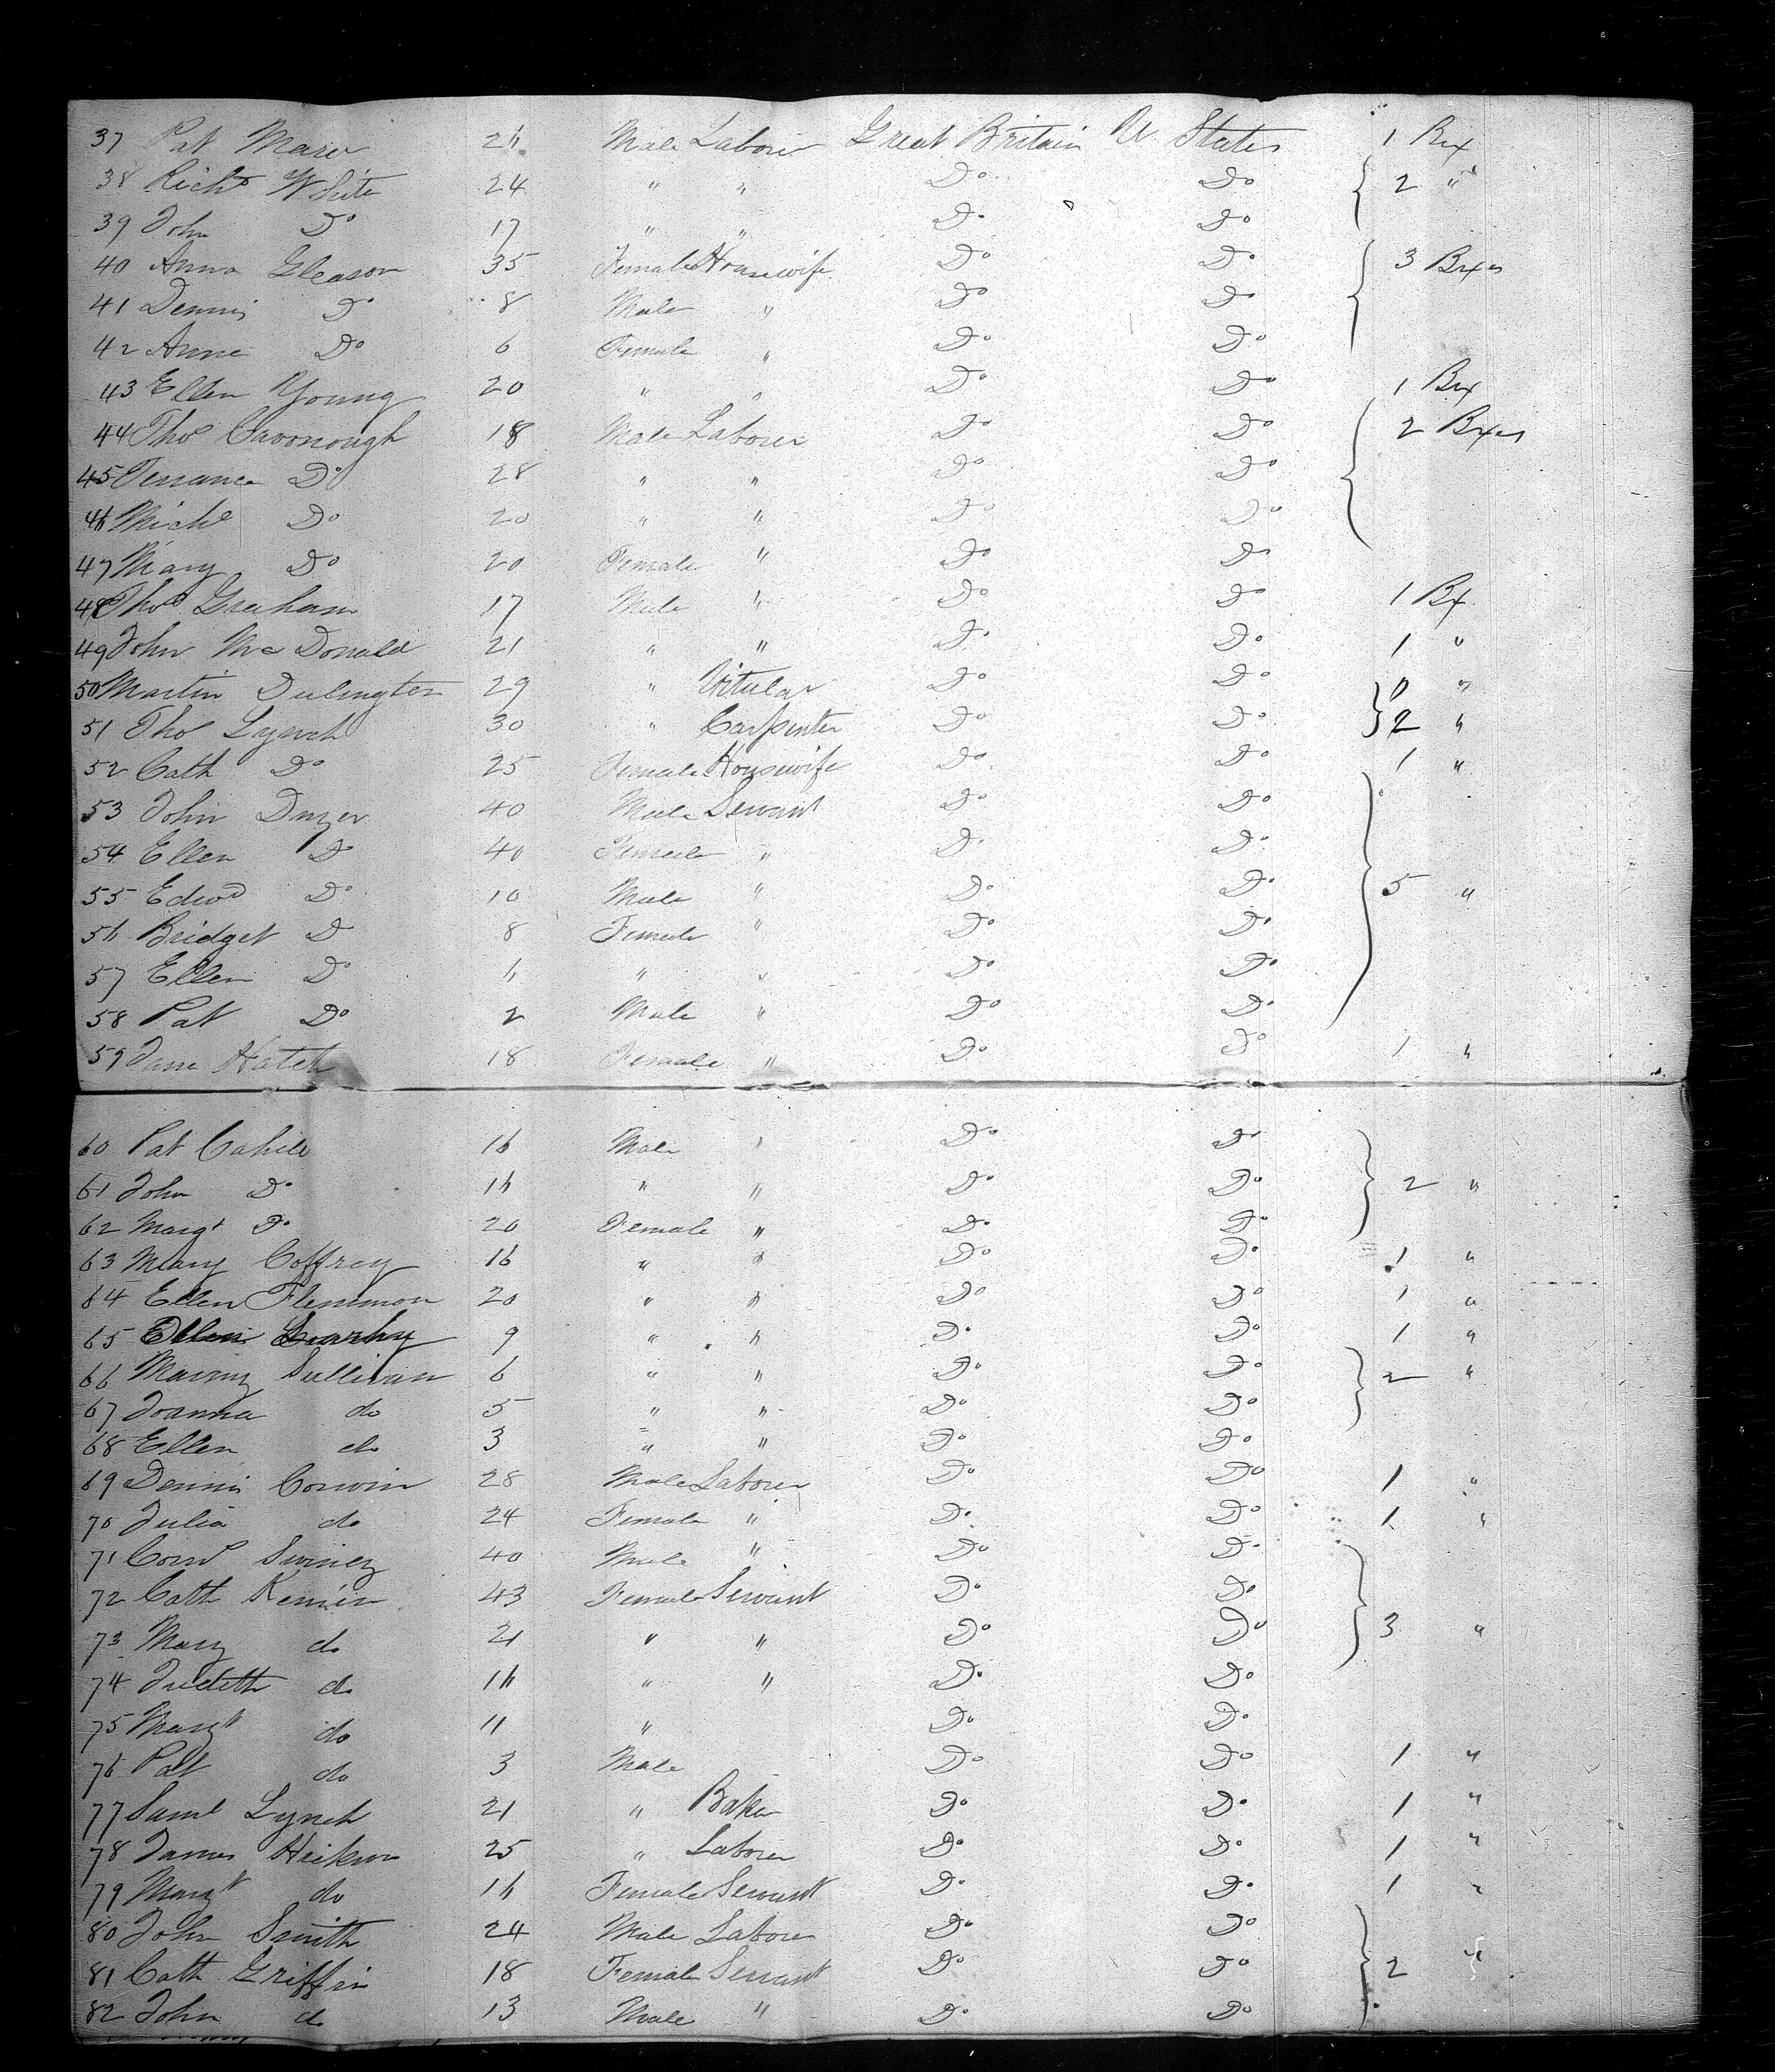 37 Pat Marr 26 Male Laborer Great Britain U. States 1 Bx
38 Richd White 24 " " Do Do 2 "
39 John Do 17 " " Do Do
40 Anna Gleason 35 Female Housewife Do Do 3 Bxes
41 Dennis Do 8 Male " Do Do
42 Anne Do 6 Female " Do Do
43 Ellen Young 20 " " Do Do 1 Bx
44 Thos Cavonough 18 Male Laborer Do Do 2 Bxes
45 Terrance Do 28 " " Do Do
46 Michl Do 20 " " Do Do
47 Mary Do 20 Female " Do Do
48 Thos Graham 17 Male " Do Do 1 Bx
49 John Mc Donald 21 " " Do Do 1 "
50 Martin Dulington 29 " Vitular Do Do "
51 Thos Lynch 30 " Carpenter Do Do 2 "
52 Cath Do 25 Female Housewife Do Do 1 "
53 John Dwyer 40 Male Servant Do Do
54 Ellen Do 40 Female " Do Do
55 Edwd Do 10 Male " Do Do 5 "
56 Bridget Do 8 Female " Do Do
57 Ellen Do 6 " " Do Do
58 Pat Do 2 Male " Do Do
59 Jane Hatch 18 Female " Do Do 1 "
60 Pat Cahill 16 Male " Do Do
61 John Do 16 " " Do Do 2 "
62 Margt Do 20 Female " Do Do
63 Mary Coffrey 16 " " Do Do 1 "
64 Ellen Flemmon 20 " " Do Do 1 "
65 Ellen 9 " " Do Do 1 "
66 Sullivan 6 " " Do Do 2 "
67 Joanna do 5 " " Do Do
68 Ellen do 3 " " Do Do
69 Dennis Corwin 28 Male Laborer Do Do 1 "
70 Julia do 24 Female " Do Do 1 "
71 Cornl Swiney 40 Male " Do Do
72 Cath 43 Female Servant Do Do
73 Mary do 21 " " Do Do 3 "
74 Judith do 16 " " Do Do
75 Margt do 11 " Do Do
76 Pat do 3 Male Do Do 1 "
77 Saml Lynch 21 " Baker Do Do 1 "
78 James Hickson 25 " Laborer Do Do 1 "
79 Margt do 16 Female Servant Do Do 1 "
80 John Smith 24 Male Laborer Do Do
81 Cath Griffin 18 Female Servant Do Do 2 "
82 John do 13 Male " Do Do